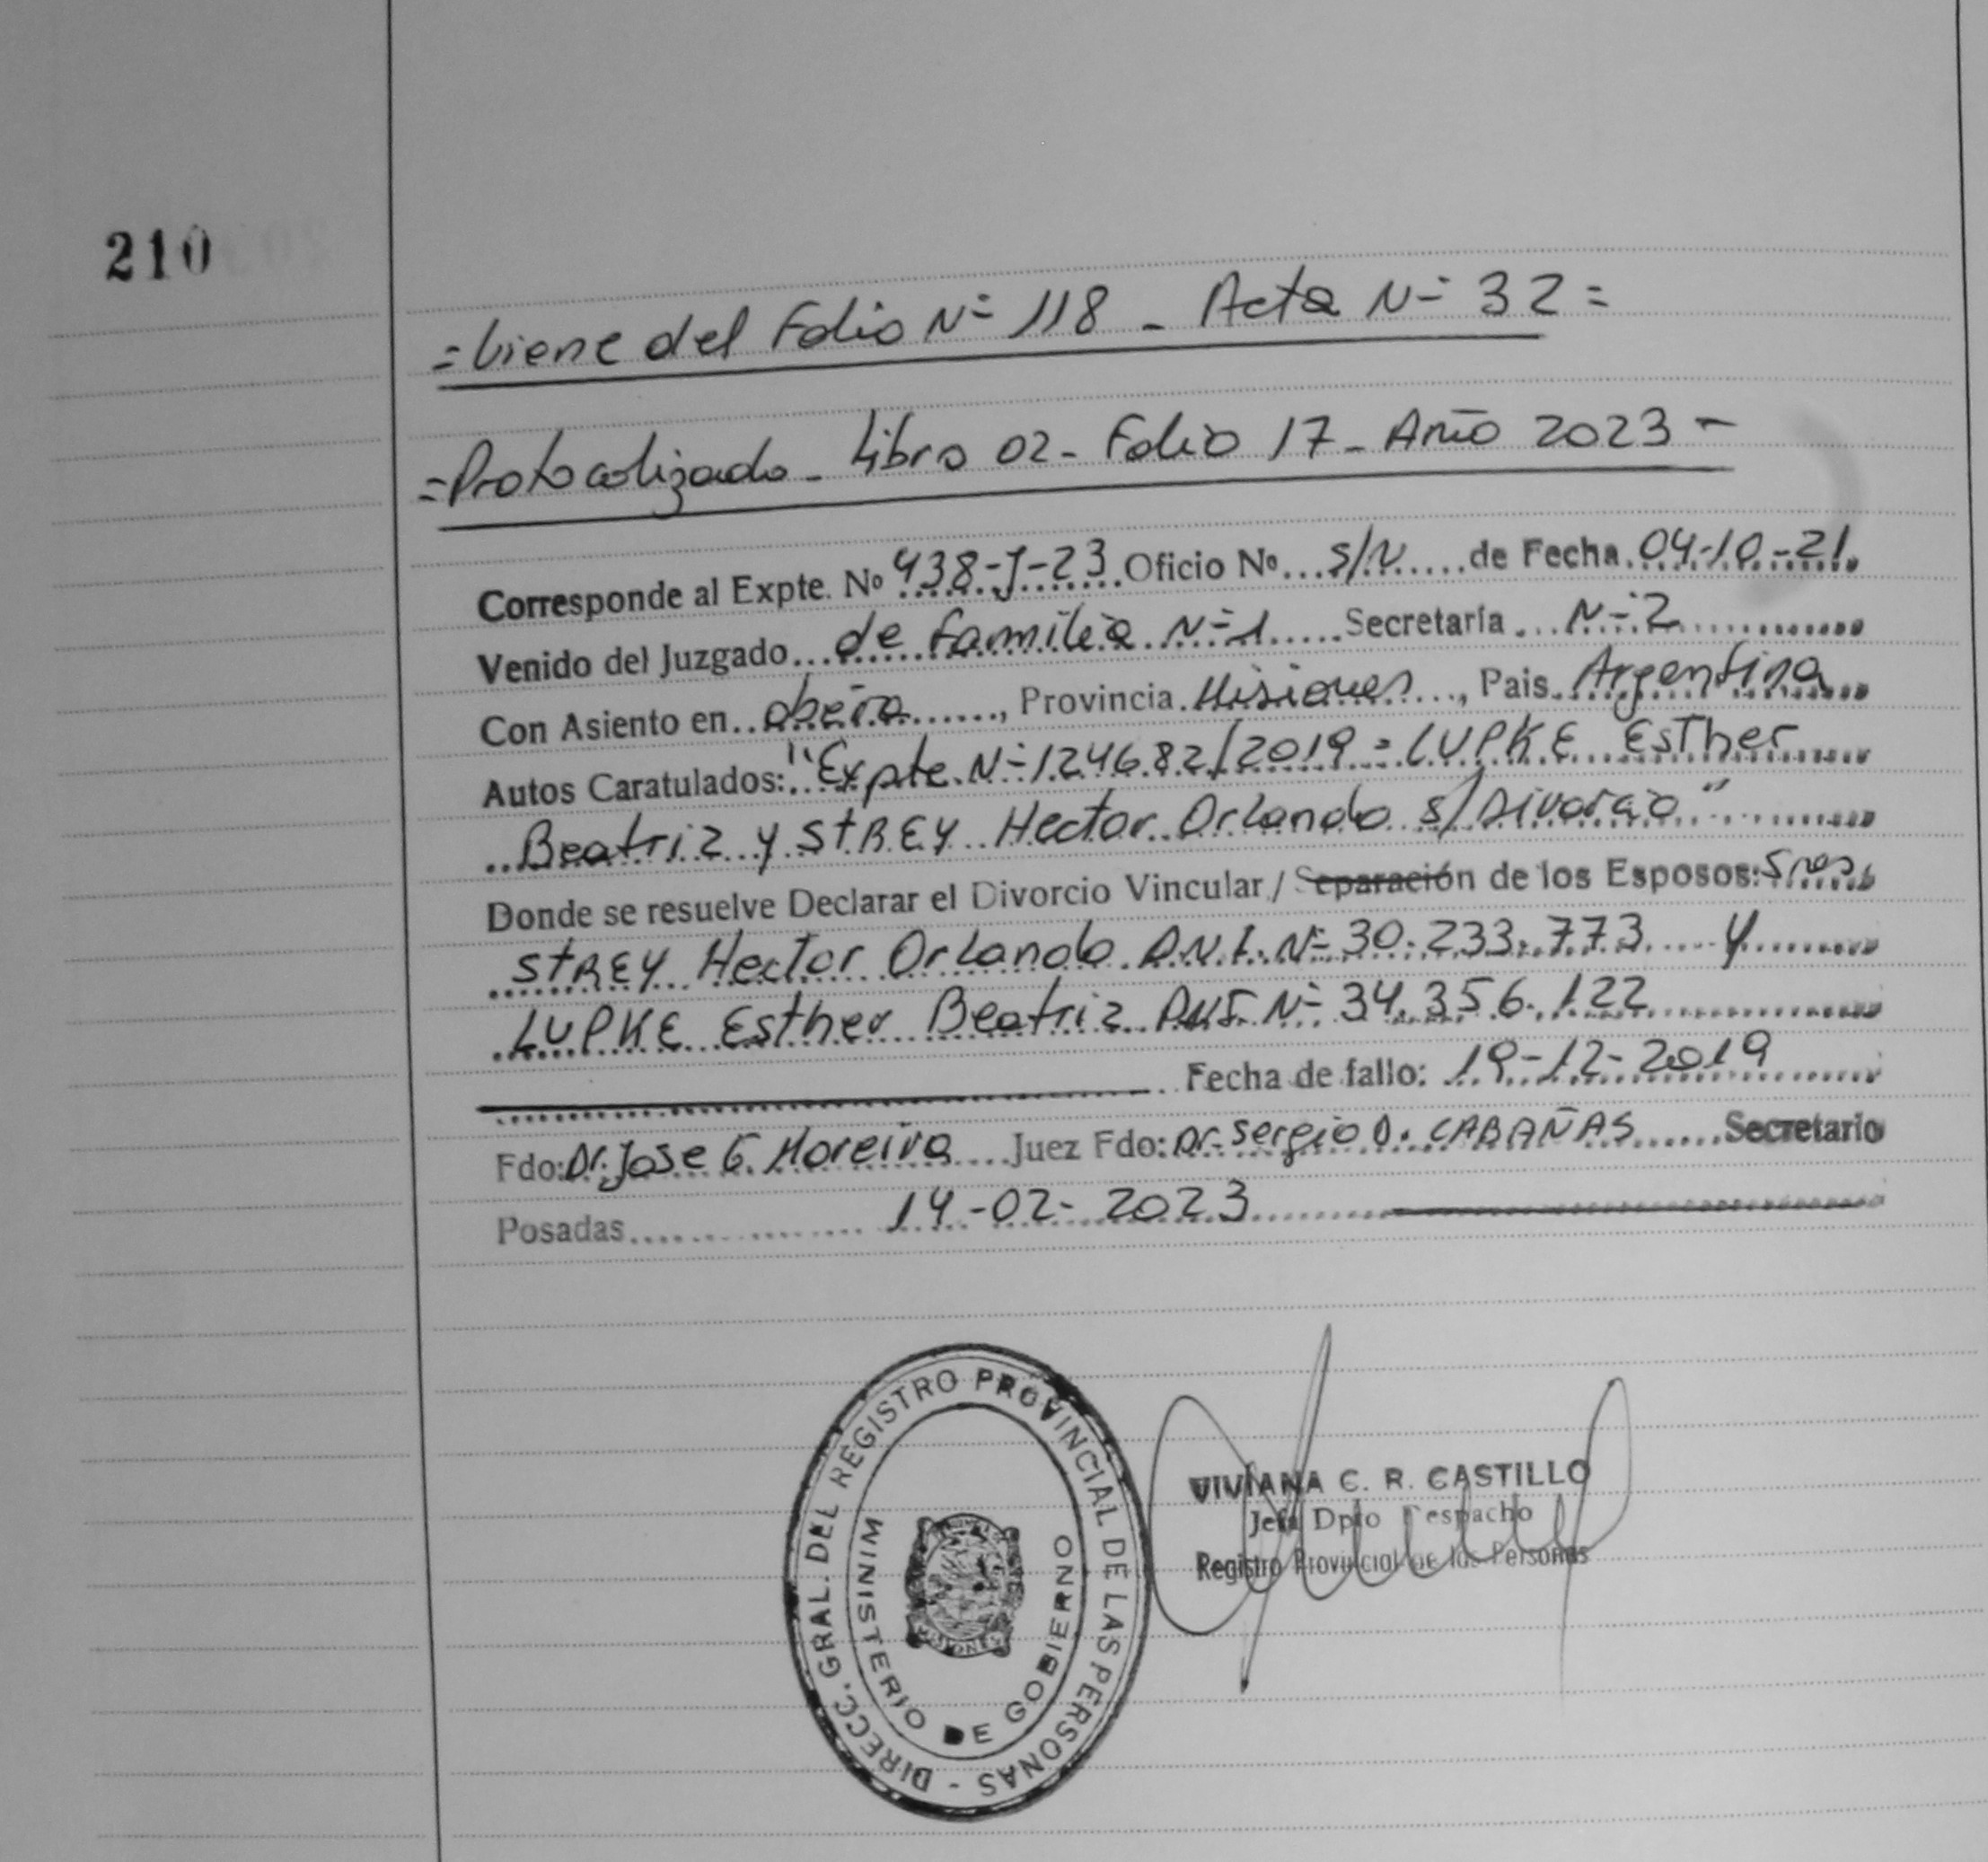 210
=Viene del Folio Nº 118 - Acta Nº 32=
=Protocolizado - Libro 02 - Folio 17 - Año 2023 -
Corresponde al Expte. Nº 438-J-23. Oficio Nº... S/N.....de Fecha. 04-10-21.
Venido del Juzgado... de Familia Nº 1.....Secretaría... Nº 2............
Con Asiento en.. Oberá......., Provincia. Misiones..., Pais. Argentina....
Autos Caratulados:.. "Expte. Nº 124682/2019 = LUPKE Esther....
...Beatriz y STREY Hector Orlando s/Divorcio"............
Donde se resuelve Declarar el Divorcio Vincular / Separación de los Esposos: Sres.
STREY Hector Orlando D.N.I. Nº 30.233.773.....y........
LUPKE Esther Beatriz DNI. Nº 34.356.122..............
Fecha de fallo: 19-12-2019........
Fdo: Dr. Jose G. Moreira....Juez Fdo: Dr. Sergio D. CABAÑAS......Secretario
Posadas................ 14-02-2023...........
DIRECC. GRAL. DEL REGISTRO PROVINCIAL DE LAS PERSONAS -
MINISTERIO DE GOBIERNO
MISIONES
VIVIANA C. R. CASTILLO
Jefa Dpto Despacho
Registro Provincial de las Personas